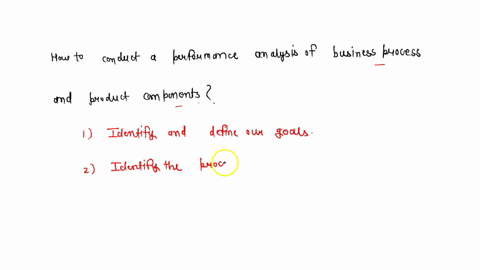 How to conduct a performance analysis of business process
and product components?
1) Identify and define our goals.
2) Identify the proc